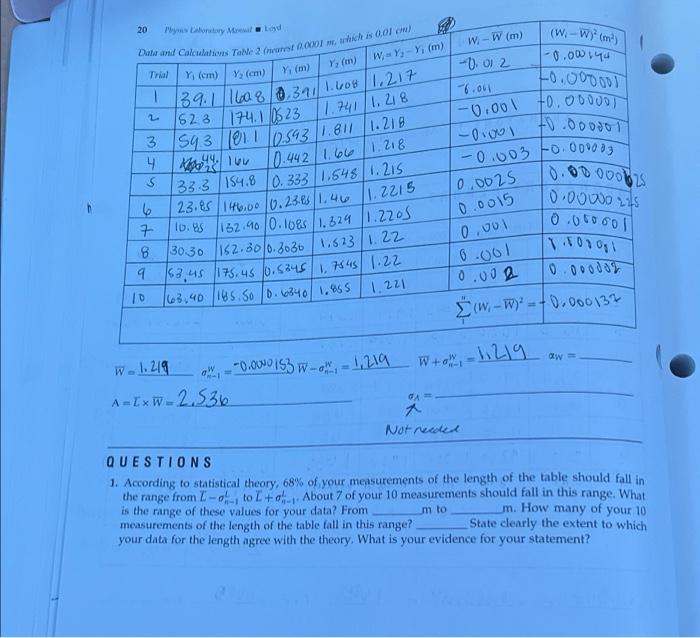 20 Physics Laboratory Manual ■ Loyd
Data and Calculations Table 2 (nearest 0.0001 m, which is 0.01 cm)
Trial Y₁ (cm) Y₂ (cm) Y₁ (m) Y₂ (m) Wᵢ = Y₂ – Y₁ (m) Wᵢ – W̅ (m) (Wᵢ – W̅)² (m²)
1 39.1 160.8 0.391 1.608 1.217 -0.012 -0.000144
2 52.3 174.1 0523 1.741 1.218 -0.001 -0.000001
3 59.3 181.1 0.593 1.811 1.218 -0.001 -0.000001
4 44.25 166 0.442 1.66 1.218 -0.001 -0.000001
5 33.3 154.8 0.333 1.548 1.215 -0.003 -0.000003
6 23.85 146.00 0.2385 1.46 1.2215 0.0025 0.00000625
7 10.85 132.90 0.1085 1.329 1.2205 0.0015 0.00000225
8 30.30 152.30 0.3030 1.523 1.22 0.001 0.000001
9 53.45 175.45 0.5345 1.7545 1.22 0.001
10 63.40 185.50 0.6340 1.855 1.221 0.002 0.000002
∑(Wᵢ – W̅)² = -0.000132
W̅ = 1.219 σᵂₙ₋₁ = -0.0000153 W̅ – σᵂₙ₋₁ = 1.219 W̅ + σᵂₙ₋₁ = 1.219 αw =
A = L̅ × W̅ = 2.536 σA =
Not needed
QUESTIONS
1. According to statistical theory, 68% of your measurements of the length of the table should fall in
the range from L̅ – σᴸₙ₋₁ to L̅ + σᴸₙ₋₁. About 7 of your 10 measurements should fall in this range. What
is the range of these values for your data? From ______m to ______m. How many of your 10
measurements of the length of the table fall in this range? ______ State clearly the extent to which
your data for the length agree with the theory. What is your evidence for your statement?